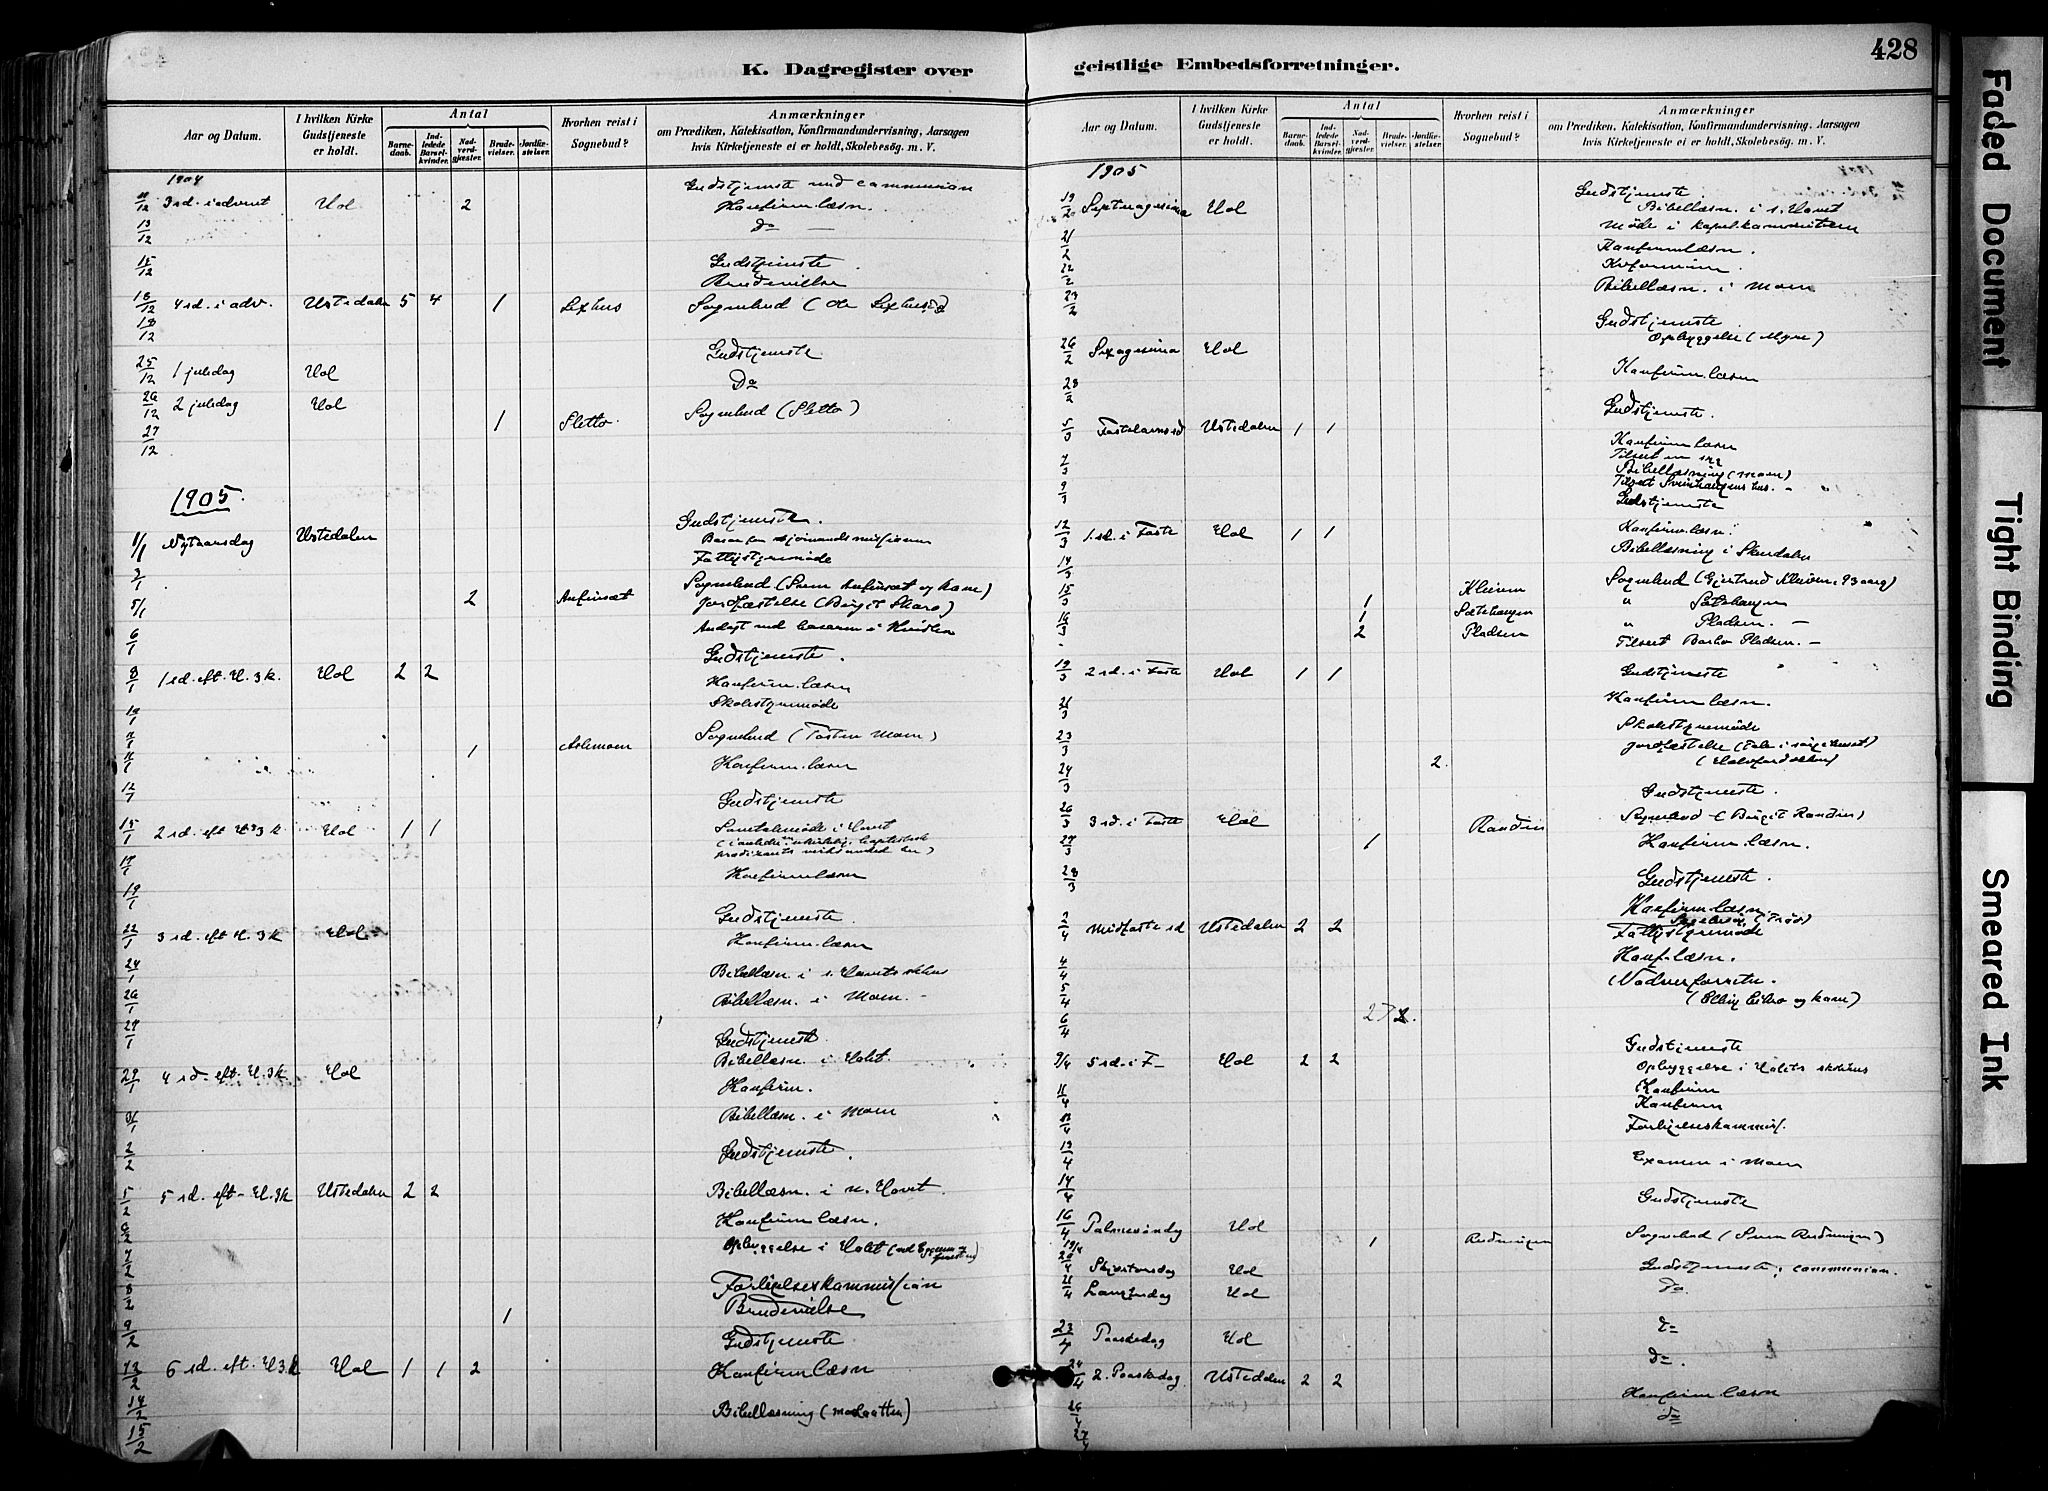 K. Dagregister over
Aar og Datum.
I hvilken Kirke Gudstjeneste er holdt.
Antal
Barnedaab.
Indledede Barselkvinder.
Nadverdgjæster.
Brudevielser.
Jordfæstelser.
Hvorhen reist i Sognebud?
Anmærkninger
om Prædiken, Katekisation, Konfirmandundervisning, Aarsagen
hvis Kirketjeneste ei er holdt, Skolebesög. m. V.
1904
Gudstjeneste med communion
11/12 3 sd. i advent Hol 2 Konfirm.læsn.
13/12 Do —
15/12 Gudstjeneste
Brudevielse
18/12 4 sd. i adv. Ustedalen 5 4 1 Sognebud
18/12
Gudstjeneste
25/12 1 juledag Hol
Do
26/12 2 juledag Hol
Sognebud (Sletto)
27/12 1 Sletto
1905.
Gudstjeneste.
1/1 Nytaarsdag Ustedalen
Fattigstyremøde
5/1 2 Sognebud
Jordfæstelse (Birgit Skaro)
6/1
Gudstjeneste.
8/1 1 sd. eft. H. 3 k. Hol 2 2
Konfirm.læsn
Skolestyremøde
Sognebud (Torsten Moen)
11/1 1
Konfirm.læsn
12/1
Gudstjeneste
15/1 2 sd. eft H 3 k Hol 1 1 Samtalemøde i Hovet
19/1 Konfirm.læsn
Gudstjeneste.
22/1 3 sd. eft H. 3 k Hol
Konfirm.læsn
24/1
Bibellæsn. i s. Hovets skhus
26/1
Bibellæsn. i Moen. -
Gudstjeneste.
Bibellæsn i Holet.
29/1 4 sd. eft. H. 3 k Hol
Konfirm.
31/1
Bibellæsn. i Moen
2/2
Gudstjeneste.
5/2 5 sd. eft. H. 3 k Ustedalen 2 2 Bibellæsn. i n. Hovet.
Konfirm læsn.
7/2 Opbyggelse i Holet
8/2 Forligelseskommission
Brudevielse
9/2 1
Gudstjeneste
12/2 6 sd. eft. H 3 k Hol 1 1 2
Konfirm læsn
14/2
Bibellæsning
15/2
geistlige Embedsforretninger.
428
Aar og Datum.
I hvilken Kirke Gudstjeneste er holdt.
Antal
Barnedaab.
Indledede Barselkvinder.
Nadverdgjæster.
Brudevielser.
Jordfæstelser.
Hvorhen reist i Sognebud?
Anmærkninger
om Prædiken, Katekisation, Konfirmandundervisning, Aarsagen
hvis Kirketjeneste ei er holdt, Skolebesög. m. V.
1905
Gudstjeneste.
19/2 Septuagesima Hol Bibellæsn. i s. Hovet
Møde i kapelkommiteen
21/2 Konfirmlæsn.
22/2
23/2 Bibellæsn. i Moen
Gudstjeneste.
Opbyggelse (Myre)
26/2 Sexagesima Hol
Konfirm.læsn
28/2
Gudstjeneste.
5/3 Fastelavnssd Ustedalen 1 1
Konfirm læsn
7/3
Bibellæsning (Moen)
9/3
Gudstjeneste
12/3 1. sd. i Faste Hol 1 1 Konfirm.læsn.
Bibellæsning i Skurdalen
14/3
15/3 1 Kleiven Sognebud (Gjertrud Kleiven. 93 aarg)
16/3 1 Sætehaugen " Sætehaugen
2 Pladsen " Pladsen. -
19/3 2 sd. i Faste Hol 1 1 Gudstjeneste
21/3 Konfirm læsn.
Skolestyremøde
23/3
24/3 2
Gudstjeneste.
26/3 3 sd. i Faste Hol Sognebud
1
Konfirm.læsn.
28/3
Gudstjeneste.
Konfirm læsn
2/4 Midfaste sd Ustedalen 2 2 Fattigstyremøde
4/4 Konf.læsn.
5/4
6/4
Gudstjeneste
9/4 5 sd. i F- Hol 2 2 Opbyggelse i Holets skolehus
11/4 Konfirm
Konfirm
Forligelseskommis.
13/4
Examen i Moen
14/4
Gudstjeneste
16/4 Palmesøndg Hol
19/4 1 Sognebud
20/4 Skjærtorsdag Hol Gudstjeneste; communion.
21/4 Langfredag Hol Do
23/4 Paaskedag Hol do
24/4 2. Paaskedag. Ustedalen 2 2 do.
Konfirm læsn
26/4 do
27/4
Faded Document
Tight Binding
Smeared Ink